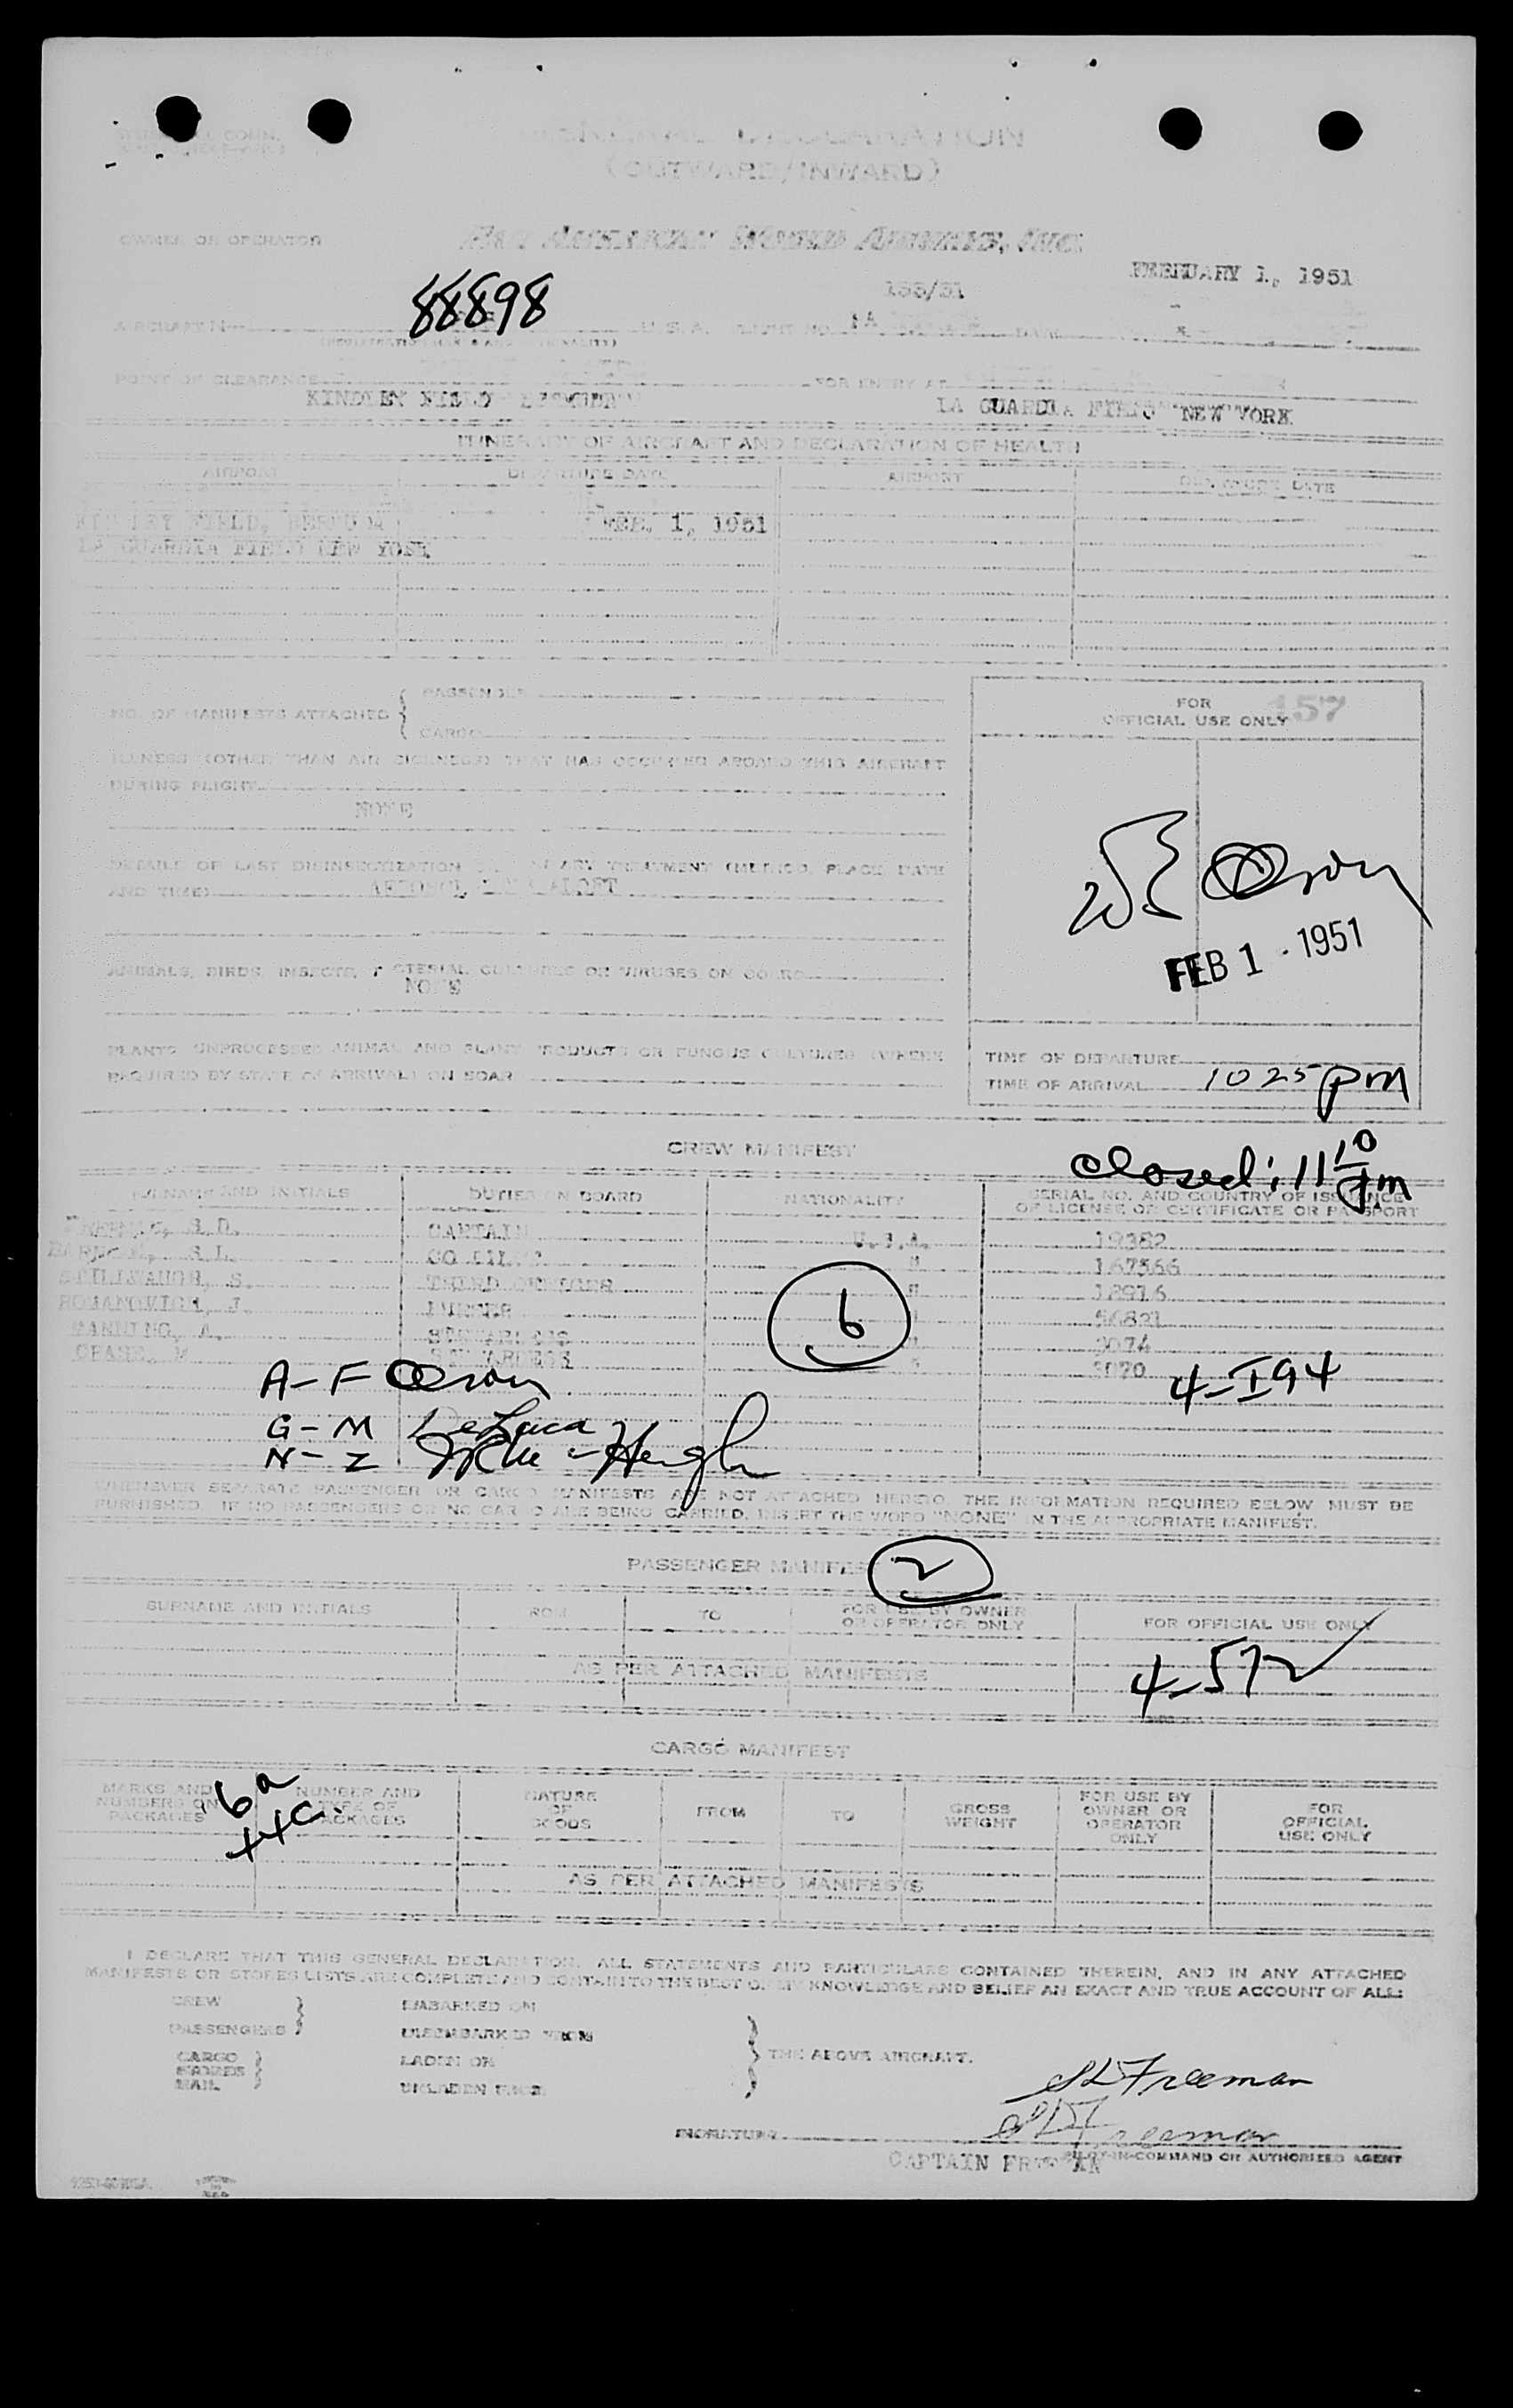 GENERAL DECLARATION
(OUTWARD/INWARD)
OWNER OR OPERATOR PAN AMERICAN WORLD AIRWAYS, INC.
FEBRUARY 1, 1951
88898 155/31
AIRCRAFT U. S. A. FLIGHT NO. PA DATE
(REGISTRATION MARKS AND NATIONALITY)
POINT OF CLEARANCE FOR ENTRY AT
KINDLEY FIELD BERMUDA LA GUARDIA FIELD NEW YORK
ITINERARY OF AIRCRAFT AND DECLARATION OF HEALTH
AIRPORT DEPARTURE DATE AIRPORT DEPARTURE DATE
KINDLEY FIELD, BERMUDA FEB. 1, 1951
LA GUARDIA FIELD NEW YORK
NO. OF MANIFESTS ATTACHED { PASSENGER
CARGO
FOR 157
OFFICIAL USE ONLY
ILLNESS (OTHER THAN AIR SICKNESS) THAT HAS OCCURRED ABOARD THIS AIRCRAFT
DURING FLIGHT
NONE
DETAILS OF LAST DISINSECTIZATION OR SANITARY TREATMENT (METHOD, PLACE, DATE
AND TIME) AEROSOL ALOFT
FEB 1 - 1951
ANIMALS, BIRDS, INSECTS, BACTERIAL CULTURES OR VIRUSES ON BOARD
NONE
PLANTS UNPROCESSED ANIMAL AND PLANT PRODUCTS OR FUNGUS CULTURES (WHERE
REQUIRED BY STATE OF ARRIVAL) ON BOARD
TIME OF DEPARTURE
TIME OF ARRIVAL 10 25 pm
CREW MANIFEST
closed: 11 10 pm
SURNAME AND INITIALS DUTIES ON BOARD NATIONALITY SERIAL NO. AND COUNTRY OF ISSUANCE
OF LICENSE OR CERTIFICATE OR PASSPORT
FREEMAN, S.D. CAPTAIN U.S.A. 19382
S.L. CO PILOT " 167566
S. THIRD OFFICER " 12916
ROMANOVICH, J. PURSER " 56821
MANNING, A. STEWARDESS " 3074
STEWARDESS " 3070
6
4-I94
A-F
G-M DeLuca
N-Z
WHENEVER SEPARATE PASSENGER OR CARGO MANIFESTS ARE NOT ATTACHED HERETO, THE INFORMATION REQUIRED BELOW MUST BE
FURNISHED. IF NO PASSENGERS OR NO CARGO ARE BEING CARRIED, INSERT THE WORD "NONE" IN THE APPROPRIATE MANIFEST.
PASSENGER MANIFEST 2
SURNAME AND INITIALS FROM TO FOR USE BY OWNER
OR OPERATOR ONLY FOR OFFICIAL USE ONLY
AS PER ATTACHED MANIFESTS
4-57
CARGO MANIFEST
MARKS AND
NUMBERS ON
PACKAGES NUMBER AND
TYPE OF
PACKAGES NATURE
OF
GOODS FROM TO GROSS
WEIGHT FOR USE BY
OWNER OR
OPERATOR
ONLY FOR
OFFICIAL
USE ONLY
6a
AS PER ATTACHED MANIFESTS
I DECLARE THAT THIS GENERAL DECLARATION, ALL STATEMENTS AND PARTICULARS CONTAINED THEREIN, AND IN ANY ATTACHED
MANIFESTS OR STORES LISTS ARE COMPLETE AND CONTAIN TO THE BEST OF MY KNOWLEDGE AND BELIEF AN EXACT AND TRUE ACCOUNT OF ALL:
CREW } EMBARKED ON
PASSENGERS DISEMBARKED FROM
CARGO } LADEN ON } THE ABOVE AIRCRAFT.
STORES
MAIL UNLADEN FROM
SD Freeman
SD Freeman
SIGNATURE
CAPTAIN FREEMAN PILOT-IN-COMMAND OR AUTHORIZED AGENT